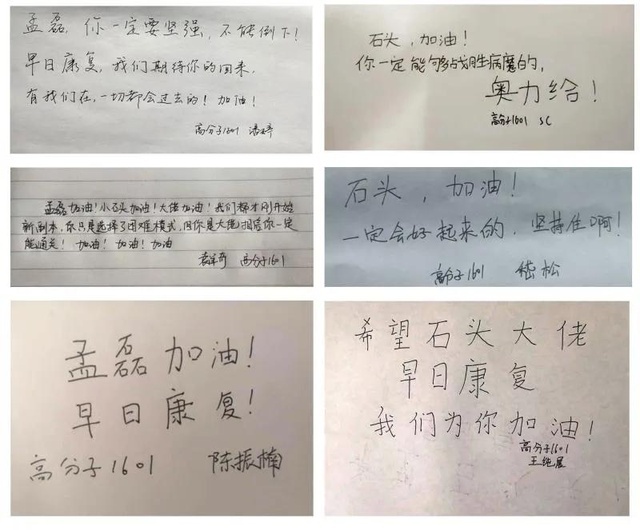 孟磊,你一定要坚强,不能倒下!
早日康复,我们期待你的回来,
有我们在,一切都会过去的!加油!
高分子1601 潘婷
石头,加油!
你一定能够战胜病魔的,
奥力给!
高分子1601 SC
孟磊加油!小石头加油!大佬加油!我们都才刚开始
新副本,你只是选择了困难模式,但你是大佬,相信你一定
能通关!加油!加油!加油
高分子1601
石头,加油!
一定会好起来的,坚持住啊!
高分子1601 嵇松
孟磊加油!
早日康复!
高分子1601 陈振楠
希望石头大佬
早日康复
我们为你加油!
高分子1601
王纯展